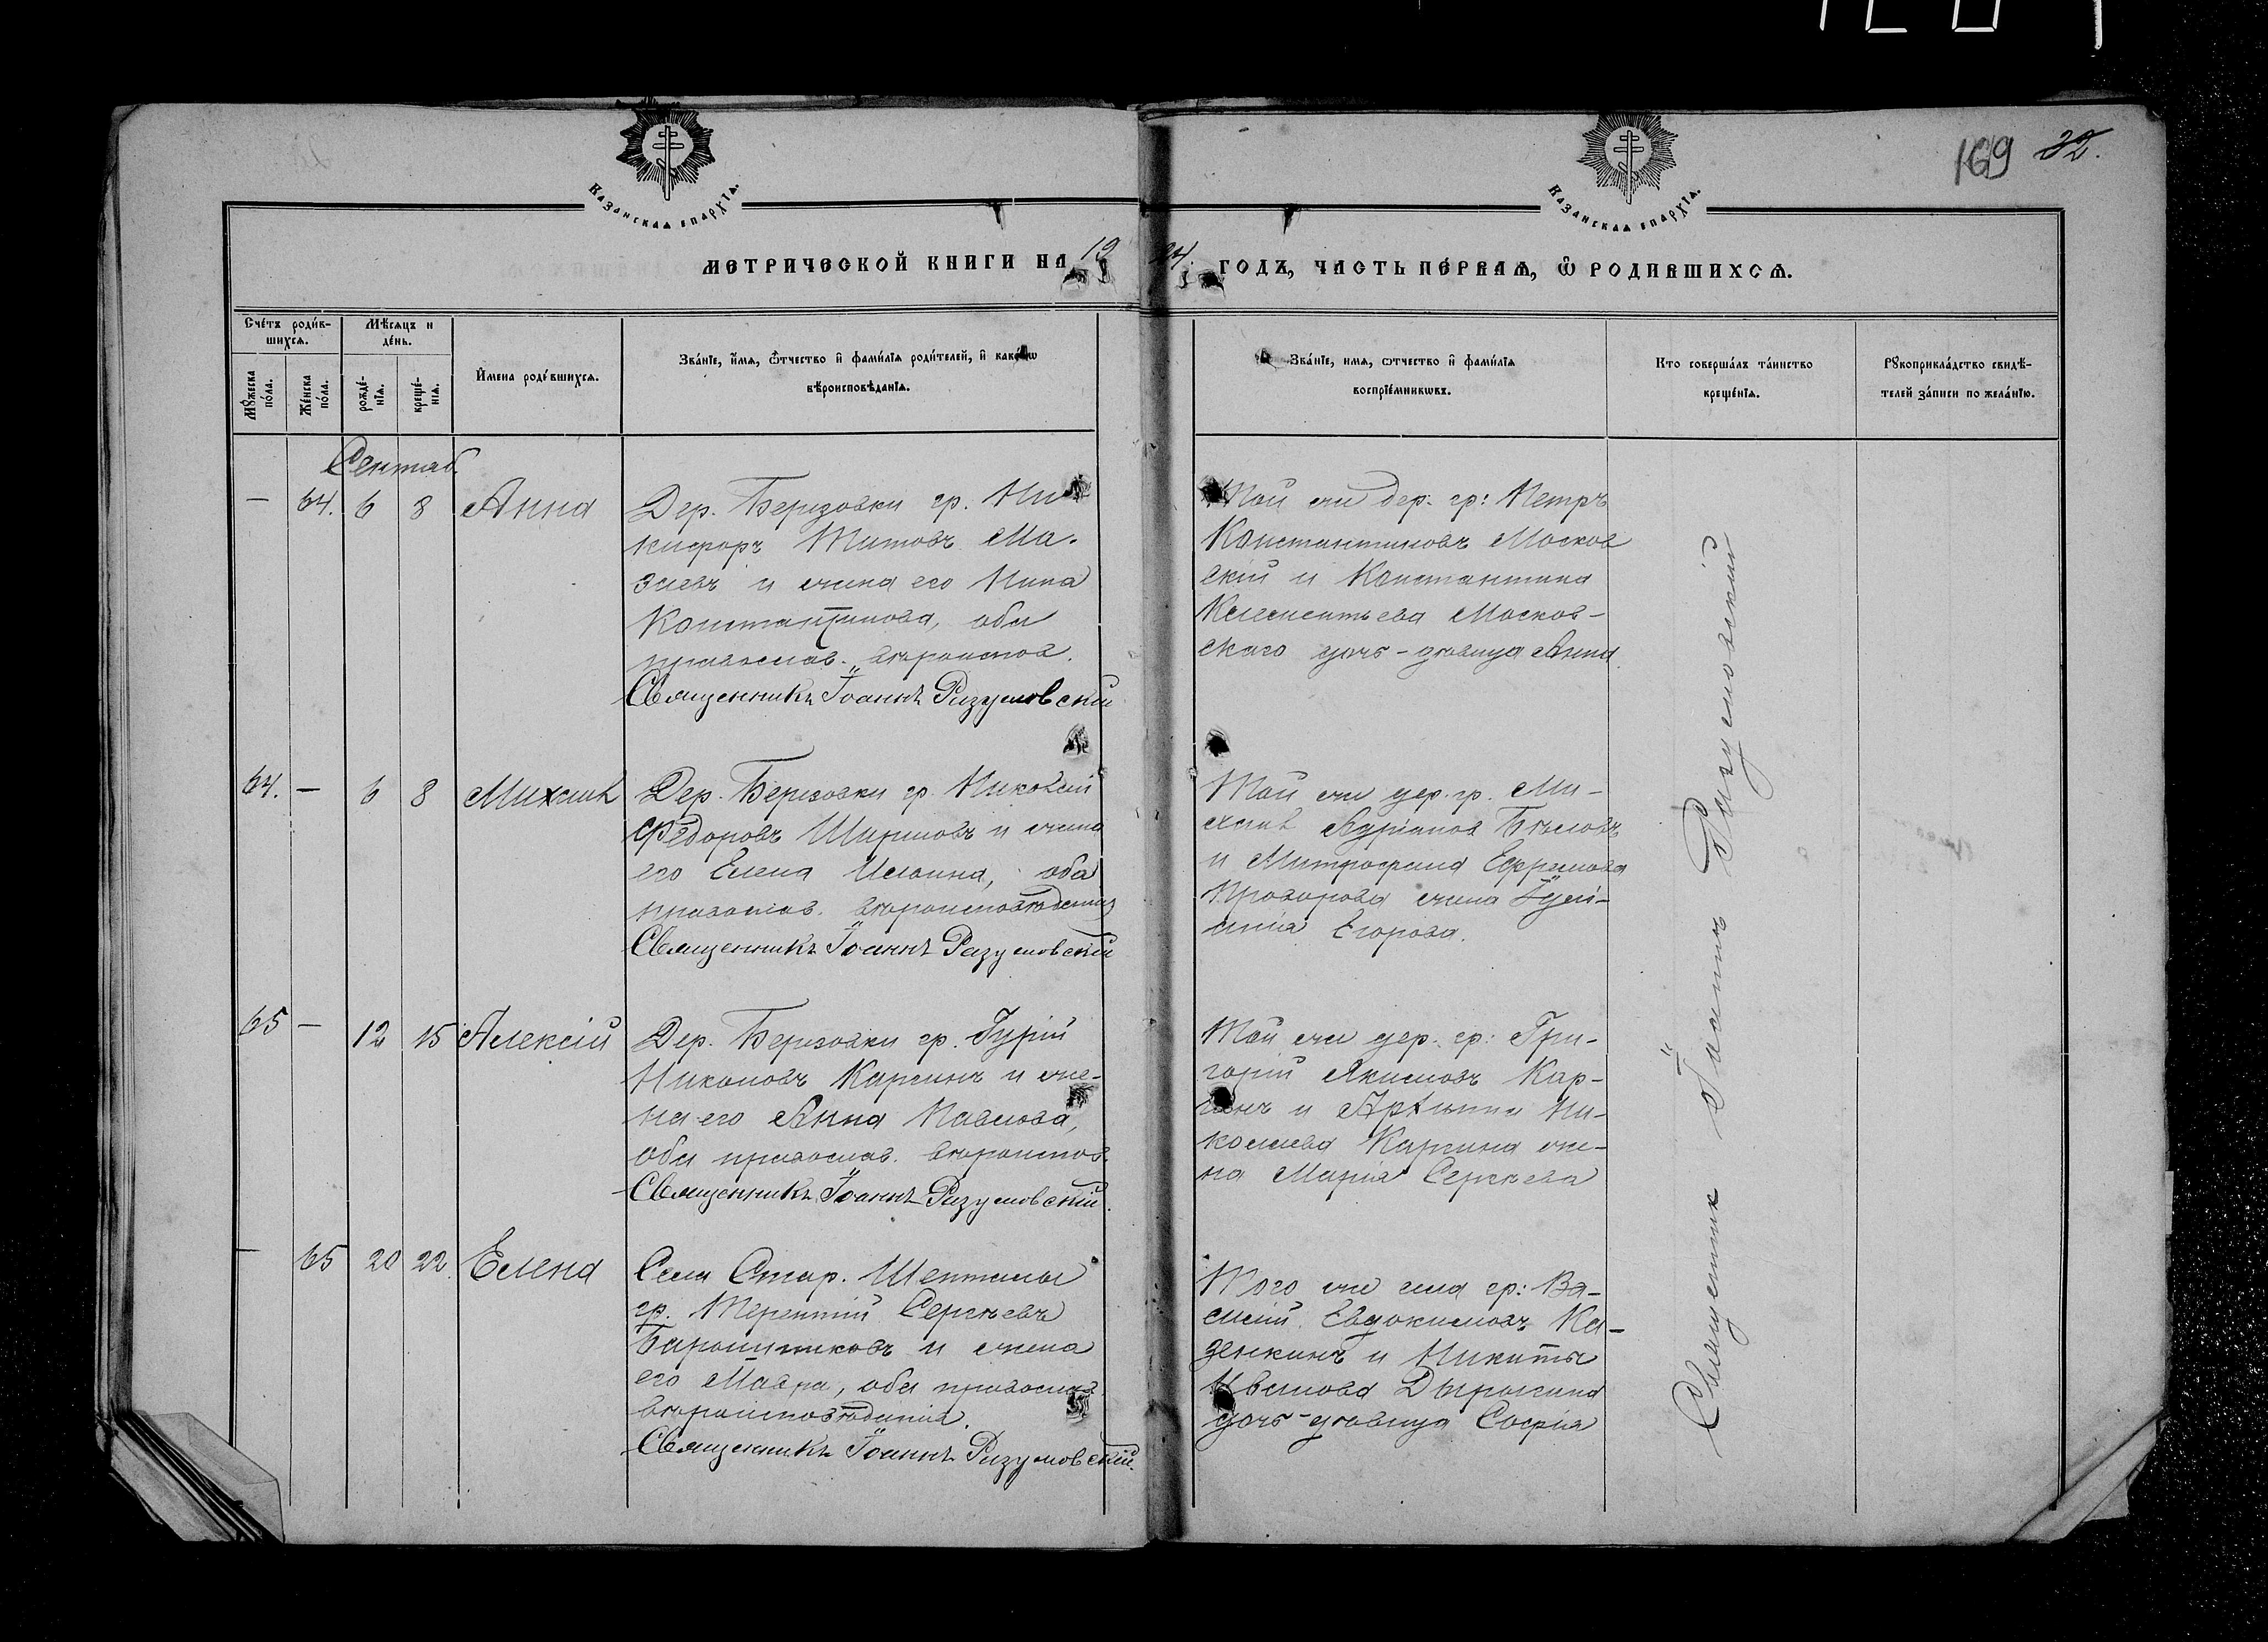 169 32.
КАЗАНСКАѦ ЕПАРХІѦ.
КАЗАНСКАѦ ЕПАРХІѦ.
МЕТРИЧЕСКОЙ КНИГИ НА 19
24. ГОДЪ, ЧАСТЬ ПЕ́РВАѦ, Ѡ РОДИВШИХСѦ.
Сче́тъ роди́в-
шихсѧ.
Мѣ́сѧцъ и
де́нь.
Мꙋ́жеска
по́ла.
Же́нска
по́ла.
рожде́-
нїѧ.
креще́-
нїѧ.
И́мена роди́вшихсѧ.
Зва́нїе, и́мѧ, ѻ́тчество и҆ фами́лїѧ роди́телей, и҆ како́гѡ
вѣ́роисповѣ́данїѧ.
Зва́нїе, имѧ, ѻтчество и҆ фами́лїѧ
воспрїе́мникѡвъ.
Кто соверша́лъ та́инство
креще́нїѧ.
Рꙋкоприкла́дство свидѣ́-
телей за́писи по жела́нїю.
Сентяб.
— 64. 6 8 Анна
Дер. Березовки гр. Ни-
кифоръ Титовъ
и жена его Нина
Константинова, оба
православ. вѣроиспов.
Священникъ Іоаннъ Разумовскій
Той же дер. гр: Петръ
Константиновъ Москов
скій и Константина
Клементьева Москов-
скаго дочь-дѣвица Анна
64. — 6 8 Михаилъ
Дер. Березовки гр. Николай
Ѳедоровъ Ширшовъ и жена
его Елена Ильина, оба
православ. вѣроисповѣданія
Священникъ Іоаннъ Разумовскій
Той же дер. гр. Ми-
хаилъ Адріанов Бѣловъ
и Митрофана Ефремова
Прозорова жена Іулі-
анія Егорова.
65 — 12 15 Алексій
Дер. Березовки гр. Гурій
Никоновъ Каргинъ и же-
на его Анна Павлова,
оба православ. вѣроиспов.
Священникъ Іоаннъ Разумовскій.
Той же дер. гр: Гри-
горій Акимовъ Кар-
гинъ и Архипа Ни-
колаева Каргина же-
на Марія Сергѣева
— 65 20 22. Елена
Села Стар. Шенталы
гр. Терентій Сергѣевъ
и жена
его Мавра, оба православ.
вѣроисповѣданія.
Священникъ Іоаннъ Разумовскій.
Того же села гр: Ва-
силій Евдокимовъ Ка-
зенкинъ и Никиты
Иванова
дочь-дѣвица Софія
Священник Іоаннъ Разумовскій